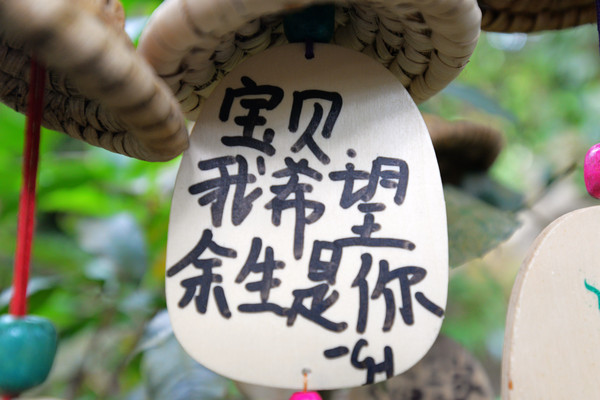 宝贝
我希望
余生是你